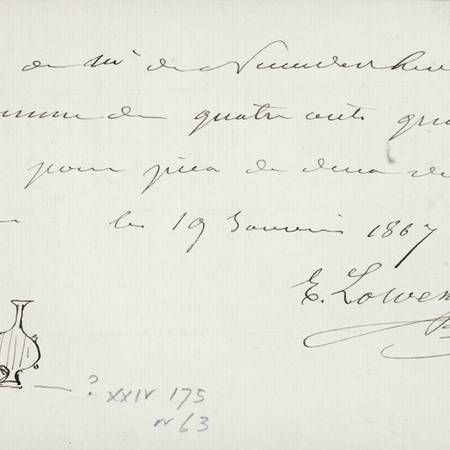 de Mr de Nieuwerkerke
somme de quatre cents qua
pour prix de deux
le 19 Janvier 1867
E. Lowen
? XXIV 175
n 63